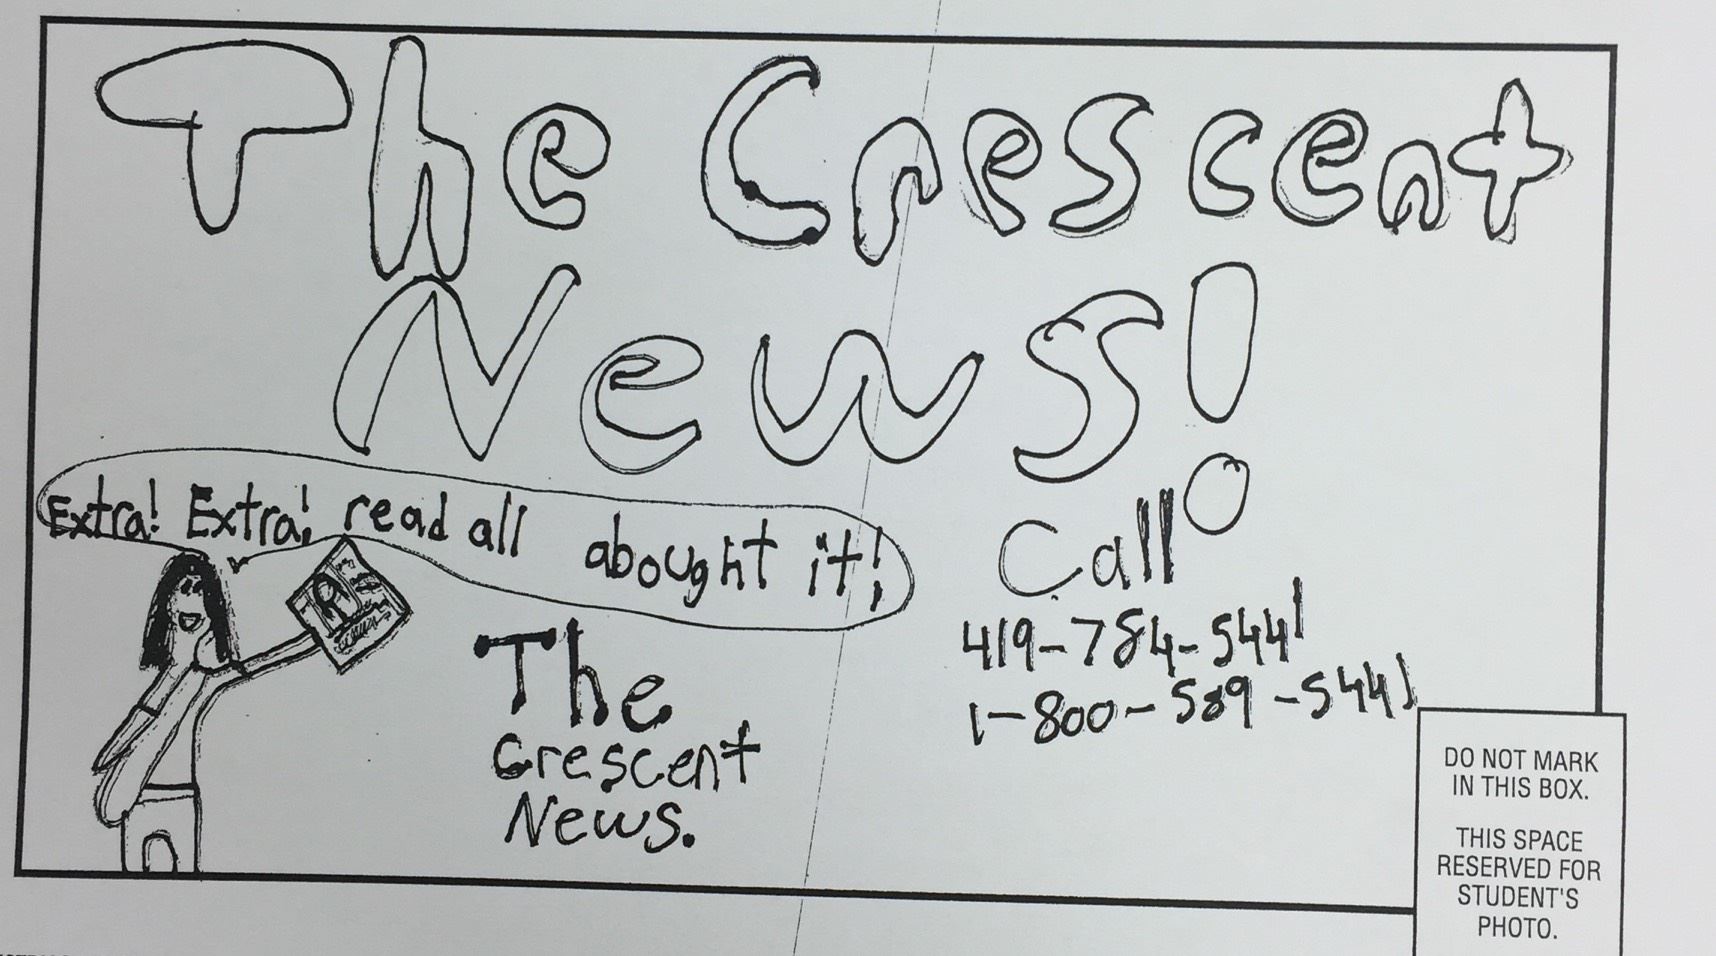 The Crescent
News!
Extra! Extra! read all abought it!
The
Crescent
News.
Call
419-784-5441
1-800-589-5441
DO NOT MARK
IN THIS BOX.
THIS SPACE
RESERVED FOR
STUDENT'S
PHOTO.